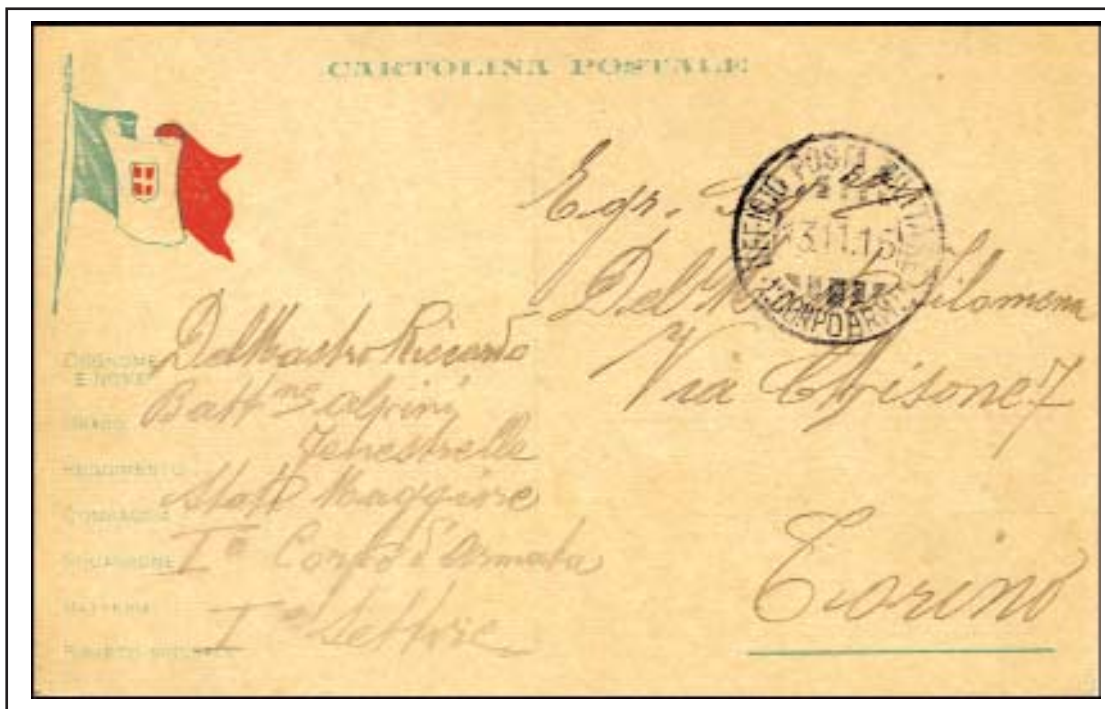 CARTOLINA POSTALE
UFFICIO POSTA MILITARE
13.11.15
1. CORPO D'ARMATA
Egr.
Filomena
Via Chisone 7
Torino
COGNOME
E NOME
GRADO
REGGIMENTO
COMPAGNIA
SQUADRONE
BATTERIA
DelMastro Riccardo
Battne alpini
Fenestrelle
Stato Maggiore
Io Corpo d'Armata
Io Settore